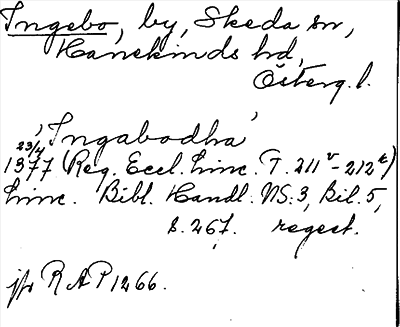 Ingebo, by, Skeda sn,
Hanekinds hd,
Österg. l.
'Ingabodha'
23/4
1377 (Reg. Eccl. Linc. T. 211v-212r)
Linc. Bibl. Handl. NS:3, Bil. 5,
s. 267. regest.
jfr RAP 1266.